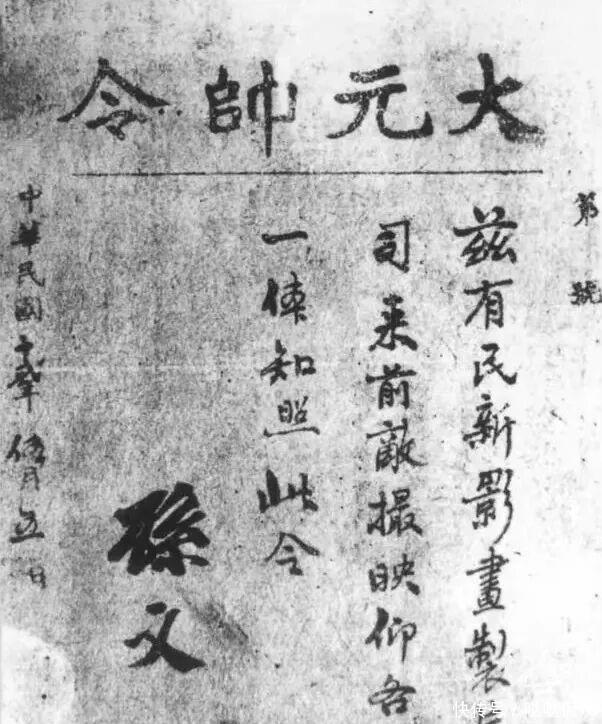 大元帥令
第 號
兹有民新影畫製
司来前敵撮映仰各
一体知照此令
孫文
中華民國年月五日
快传号/